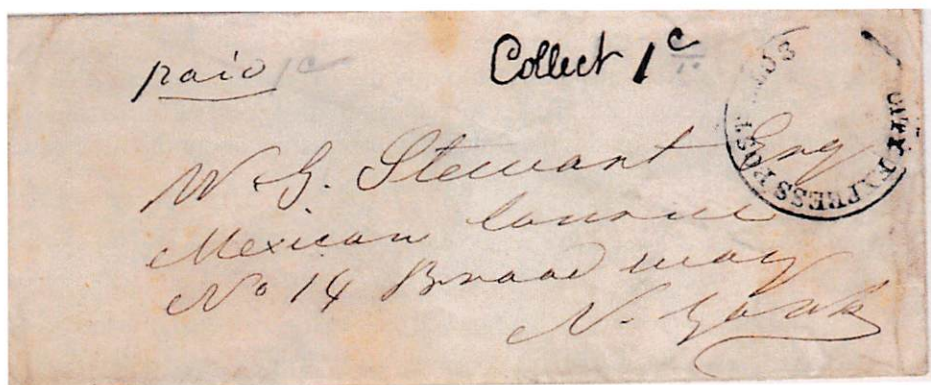 paid 1c
Collect 1c
CITY EXPRESS POST
W. G. Stewart Esq
Mexican Consul
No 14 Broad way
N. York